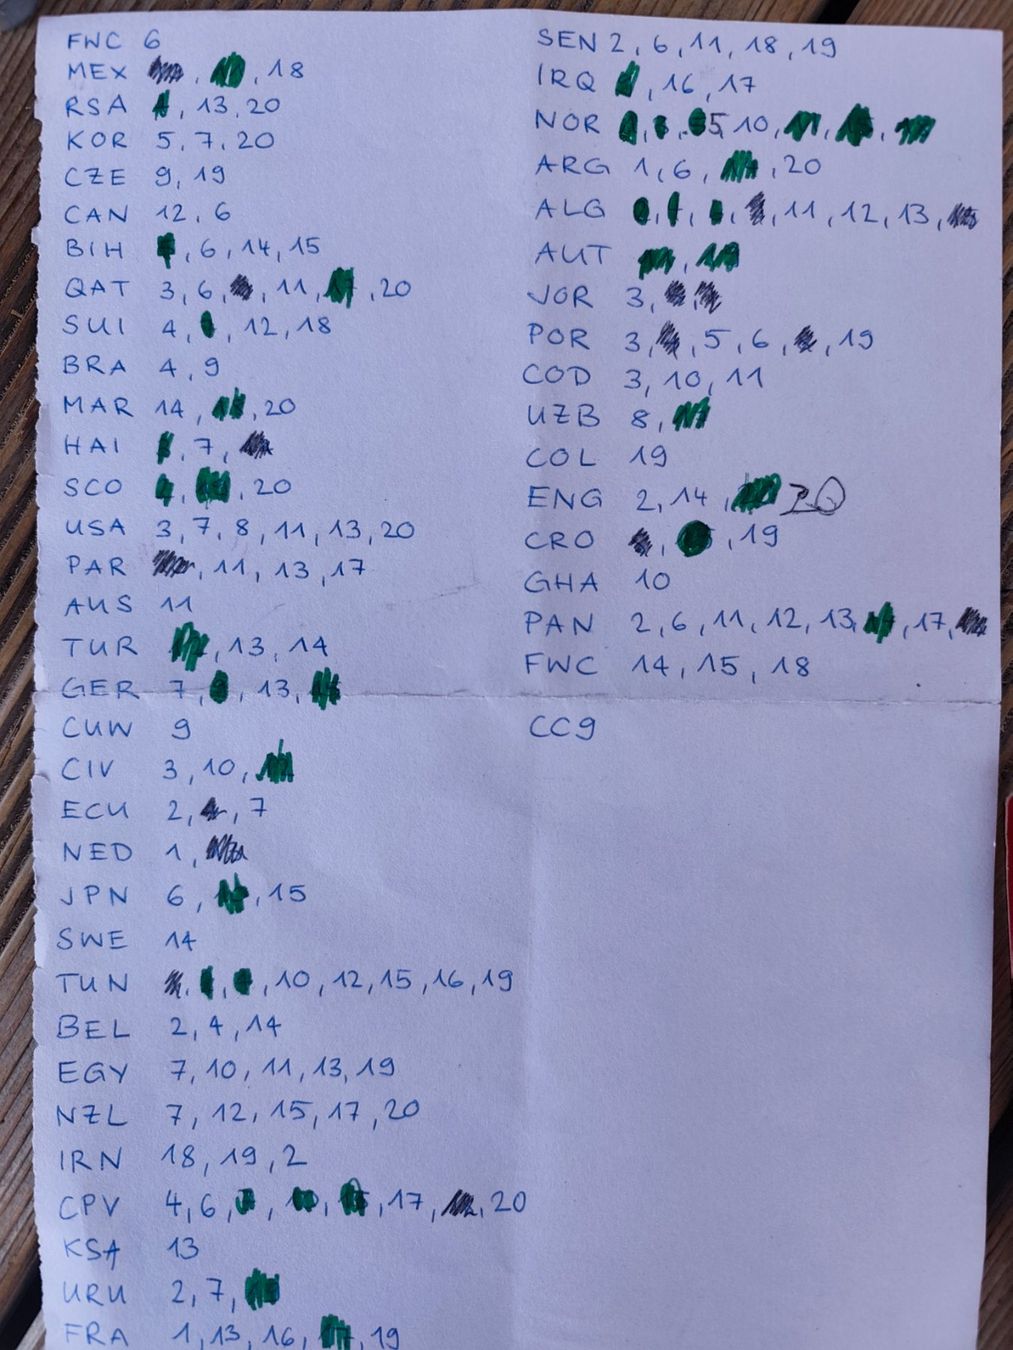 FWC 6
MEX , , 18
RSA , 13, 20
KOR 5, 7, 20
CZE 9, 19
CAN 12, 6
BIH , 6, 14, 15
QAT 3, 6, , 11, , 20
SUI 4, , 12, 18
BRA 4, 9
MAR 14, , 20
HAI , 7,
SCO , , 20
USA 3, 7, 8, 11, 13, 20
PAR , 11, 13, 17
AUS 11
TUR , 13, 14
GER 7, , 13,
CUW 9
CIV 3, 10,
ECU 2, , 7
NED 1,
JPN 6, , 15
SWE 14
TUN , , , 10, 12, 15, 16, 19
BEL 2, 4, 14
EGY 7, 10, 11, 13, 19
NZL 7, 12, 15, 17, 20
IRN 18, 19, 2
CPV 4, 6, , , , 17, , 20
KSA 13
URU 2, 7,
FRA 1, 13, 16, , 19
SEN 2, 6, 11, 18, 19
IRQ , 16, 17
NOR , , 5, 10, , ,
ARG 1, 6, , 20
ALG , , , , 11, 12, 13,
AUT ,
JOR 3, ,
POR 3, , 5, 6, , 19
COD 3, 10, 11
UZB 8,
COL 19
ENG 2, 14, 20
CRO , , 19
GHA 10
PAN 2, 6, 11, 12, 13, , 17,
FWC 14, 15, 18
CC9